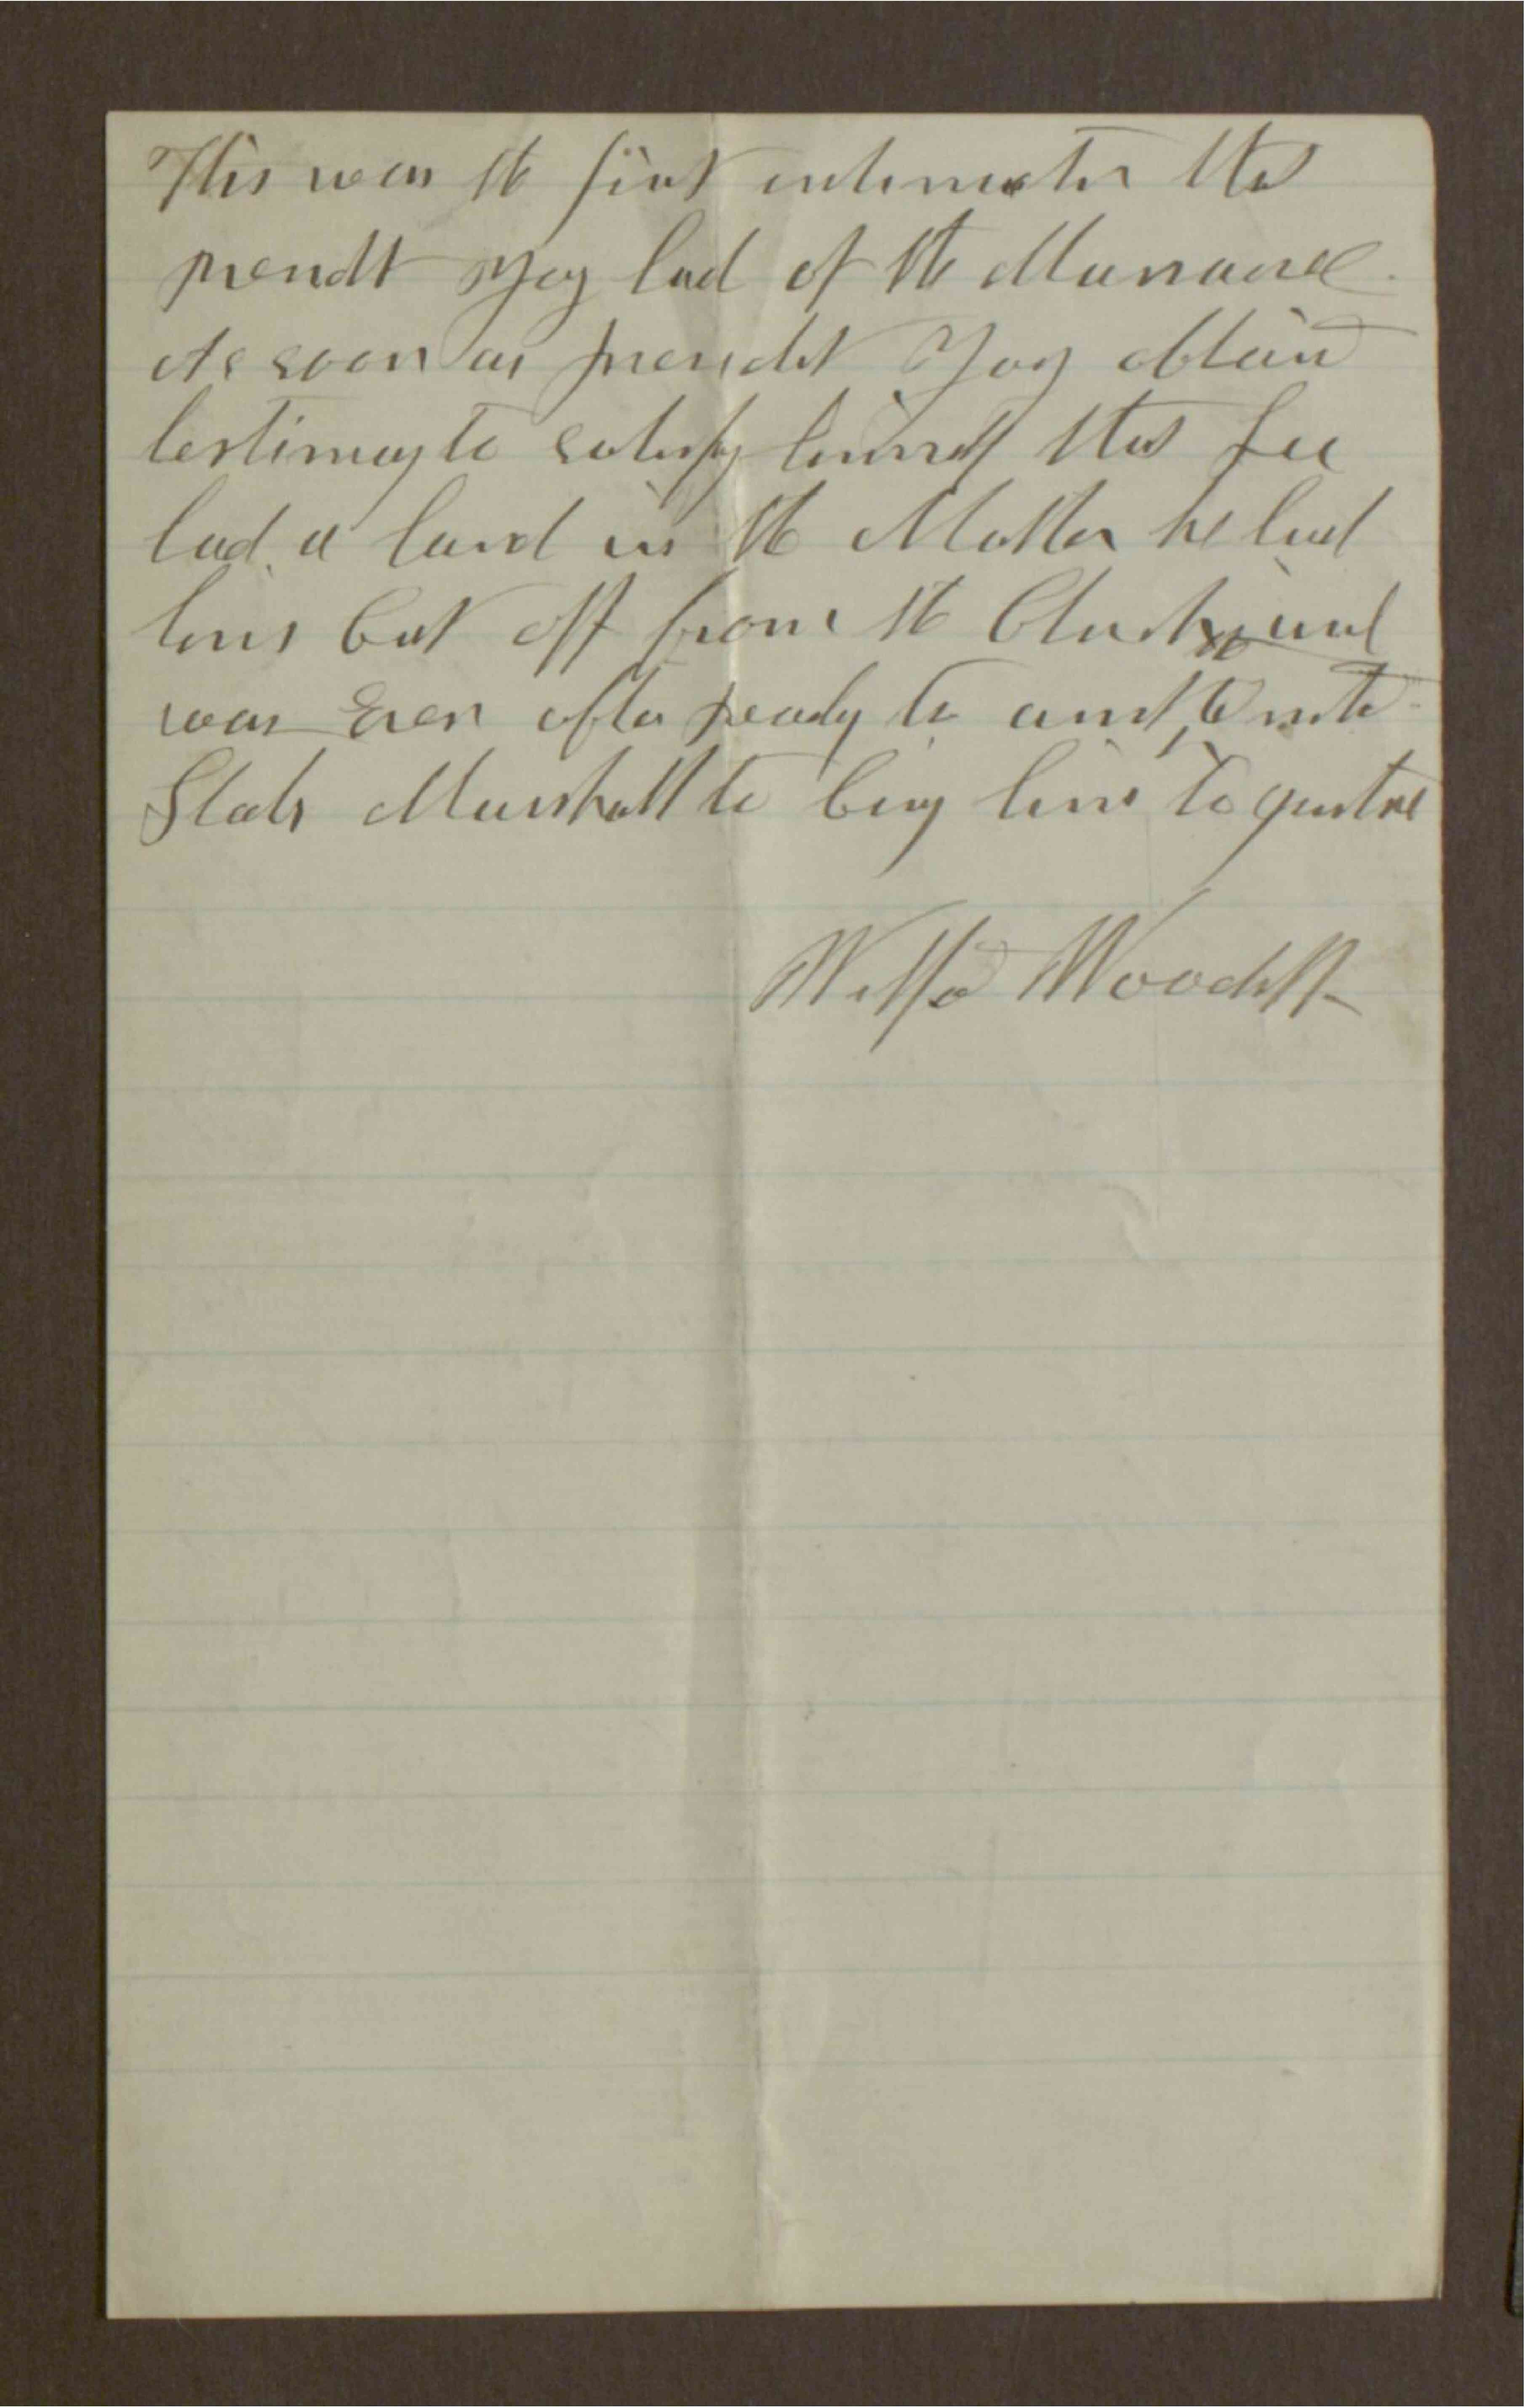 This was the first intimation that
presidt Yog had of the Massacre.
As soon as presidet Yog obtaind
testimony to satisfy himself that Lee
had a hand in the Matter he had
him Cut off from the Church and
was Ever after ready to assist the Unite
States Marshall to bring him to justice
Wilford Woodruff